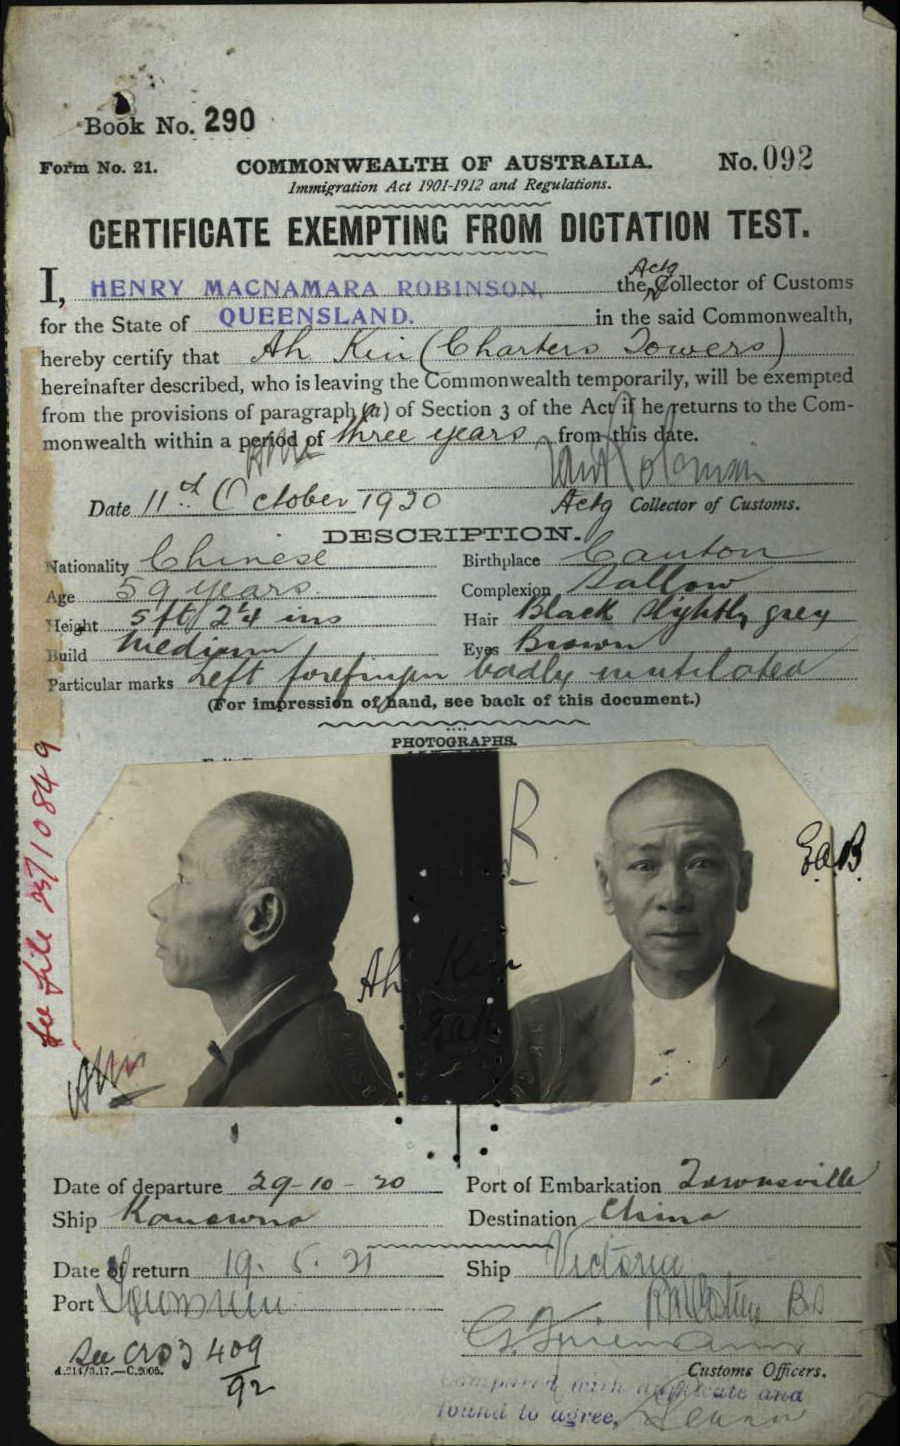 Book No. 290
Form No. 21. COMMONWEALTH OF AUSTRALIA. No. 092
Immigration Act 1901-1912 and Regulations.
CERTIFICATE EXEMPTING FROM DICTATION TEST.
I, HENRY MACNAMARA ROBINSON, the Actg Collector of Customs
for the State of QUEENSLAND. in the said Commonwealth,
hereby certify that Ah Kin (Charters Towers)
hereinafter described, who is leaving the Commonwealth temporarily, will be exempted
from the provisions of paragraph (a) of Section 3 of the Act if he returns to the Com-
monwealth within a period of three years from this date.
Date 11th October 1920 Actg Collector of Customs.
DESCRIPTION.
Nationality Chinese Birthplace Canton
Age 59 years. Complexion Sallow
Height 5 ft 2¼ ins Hair Black slightly grey
Build Medium Eyes Brown
Particular marks Left forefinger badly mutilated
(For impression of hand, see back of this document.)
PHOTOGRAPHS.
See file
B
GaB.
Ah Kin
GaB
Date of departure 29-10-20 Port of Embarkation Townsville
Ship Kanowna Destination China
Date of return 19. 5. 21 Ship Victoria
Port
See CRO3 409/92
d.214/3.17.—C.2005. Customs Officers.
Compared with duplicate and
found to agree,